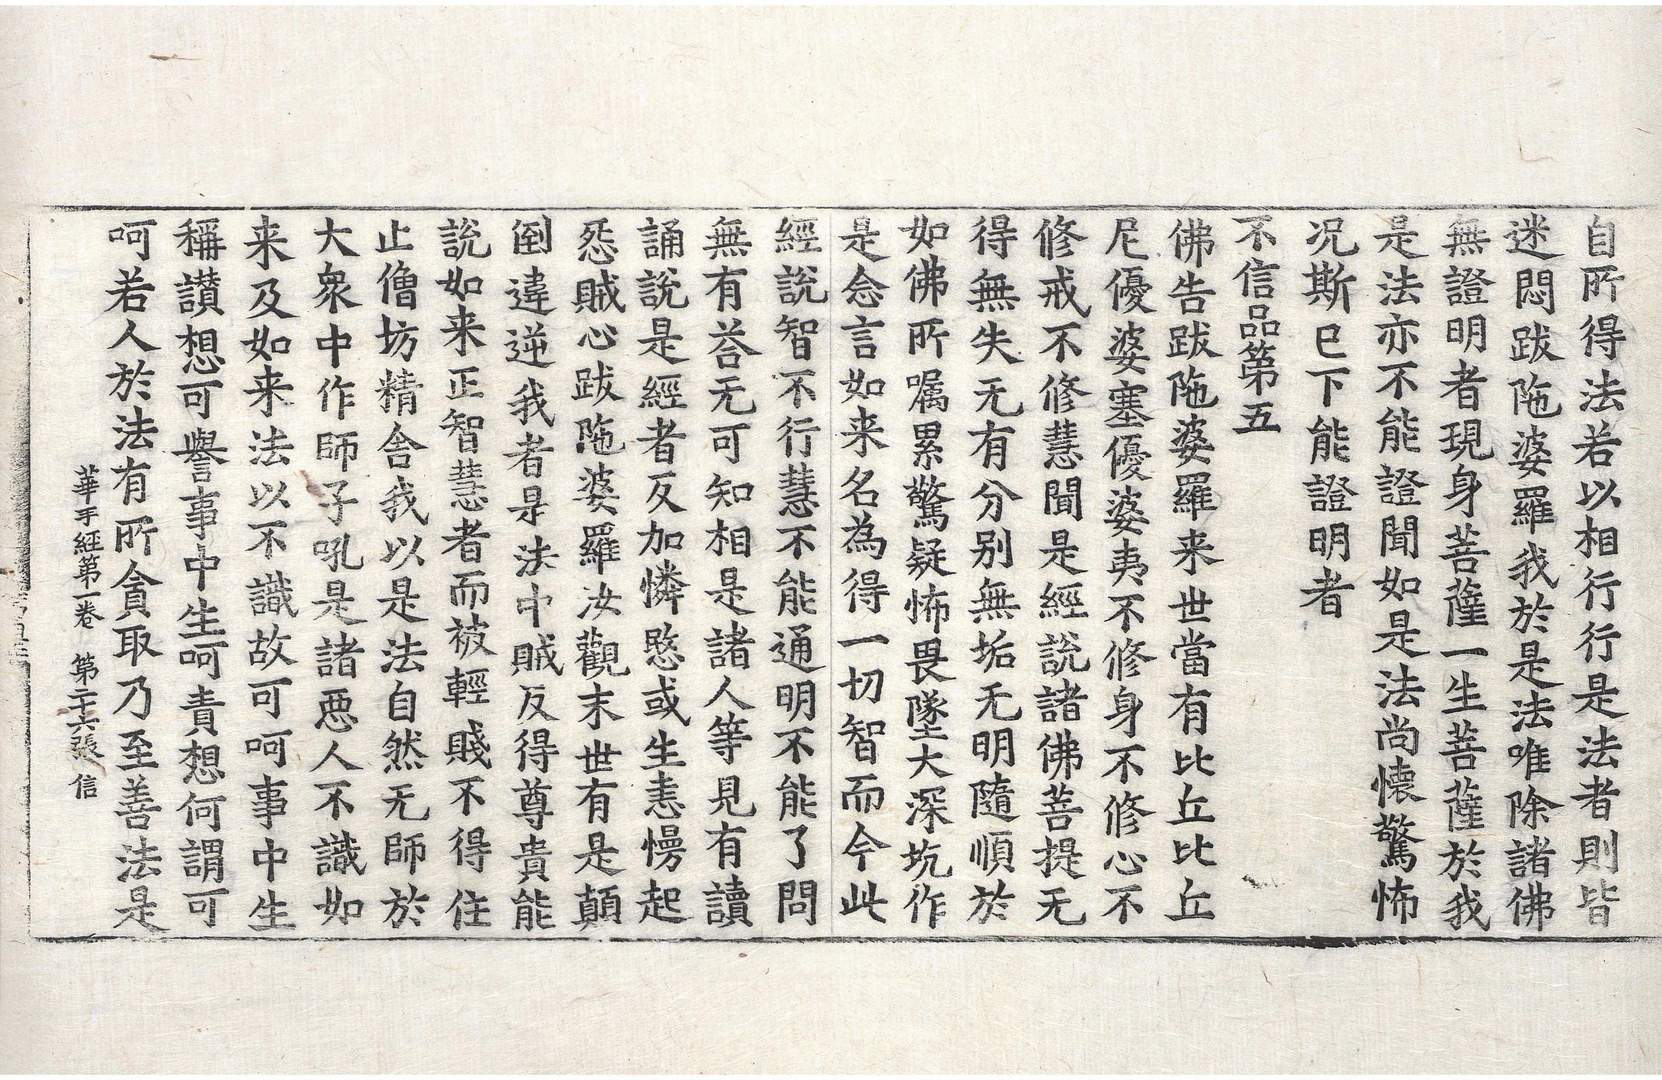 自所得法若以相行行是法者則皆
迷悶跋陁婆羅我於是法唯除諸佛
無證明者現身菩薩一生菩薩於我
是法亦不能證聞如是法尚懷驚怖
况斯已下能證明者
不信品第五
佛告跋陁婆羅来世當有比丘比丘
尼優婆塞優婆夷不修身不修心不
修戒不修慧聞是經說諸佛菩提无
得無失无有分别無垢无明隨順於
如佛所囑累驚疑怖畏墜大深坑作
是念言如来名為得一切智而今此
經說智不行慧不能通明不能了問
無有荅无可知相是諸人等見有讀
誦說是經者反加憐愍或生恚慢起
惡賊心跋陁婆羅汝觀末世有是顛
倒違逆我者於是法中賊反得尊貴能
說如来正智慧者而被輕賤不得住
止僧坊精舍我以是法自然无師於
大衆中作師子吼是諸惡人不識如
来及如来法以不識故可呵事中生
稱讃想可譽事中生呵責想何謂可
呵若人於法有所貪取乃至善法是
華手經第一卷 第二十六張 信